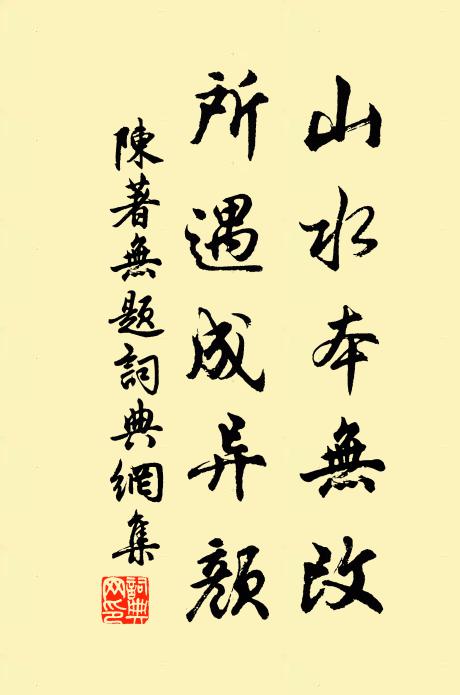 山水本無改
所遇成异顏
陳著無題詞典網集
詞典網印